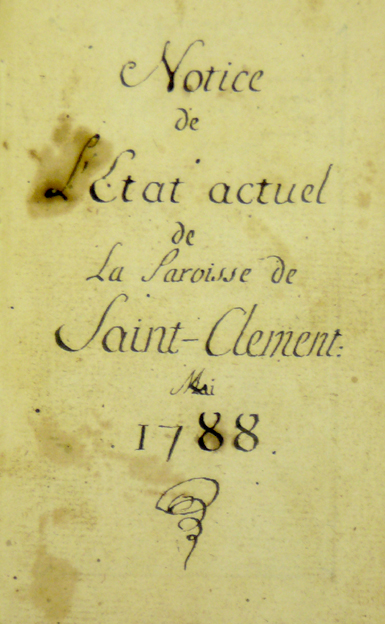 Notice
de
L'Etat actuel
de
La Paroisse de
Saint-Clement:
Mai
1788.